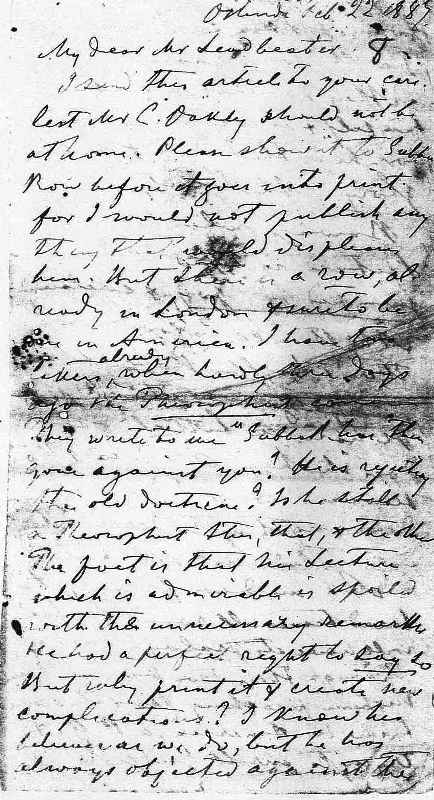 Ostende Feb. 22 1887
My dear Mr Leadbeater.
I send this article to your care
lest Mr C. Oakley should not be
at home. Please show it to Subba
Row before it goes into print
for I would not publish any
thing that would displease
him. But there is a row, al
ready in London & sure to be
one in America. I have two
letters, already when hardly three days
ago the Theosophist
They write to me "Subba has then
gone against you? He is rejecting
the old doctrine? Is he still
a Theosophist this, that, & the other
The fact is that his Lecture
which is admirable is spoiled
with the unnecessary remarks
He had a perfect right to say so
But why print it & create new
complications? I know he
believes as we do, but he has
always objected against the